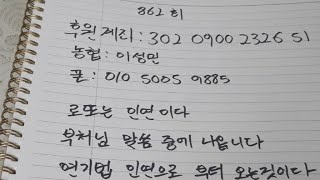 862 회
후원계리 : 302 0900 2326 51
농협 : 이성민
폰 : 010 5005 9885
로또는 인연이다
부처님 말씀 중에 나옵니다
연기법 인연으로 부터 오는것이다